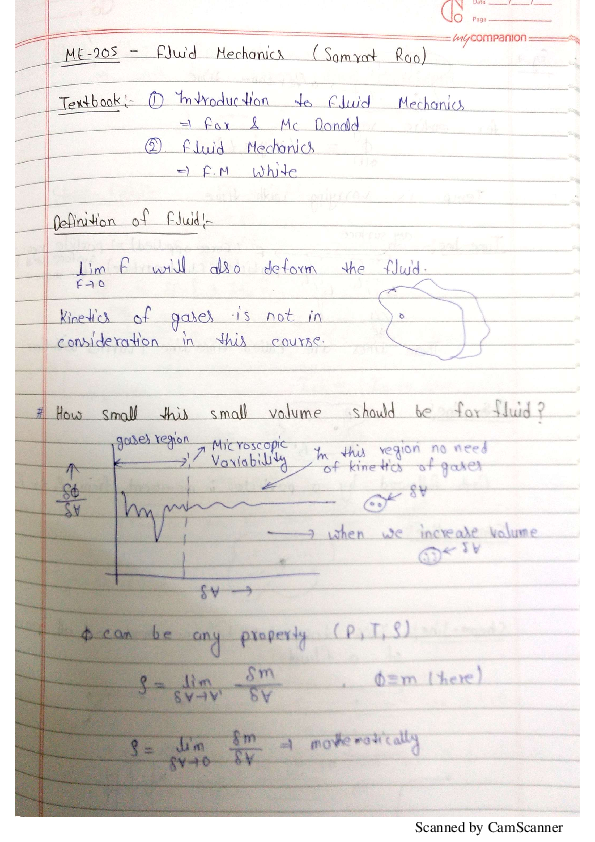 Data
Page
mycompanion
ME-205 - Fluid Mechanics (Samrat Rao)
Textbook:- ① Introduction to Fluid Mechanics
⇒ Fox & Mc Donald
② Fluid Mechanics
⇒ F.M White
Definition of Fluid:-
Lim F will also deform the fluid.
F→0
Kinetics of gases is not in
consideration in this course.
# How small this small volume should be for fluid?
gases region
Microscopic
Variability
In this region no need
of kinetics of gases
δΦ
δV
δV
→ when we increase volume
δV
δV →
Φ can be any property (P, T, ρ)
ρ = lim δm/δV . Φ=m (here)
δV→V'
ρ = lim δm/δV ⇒ mathematically
δV→0
Scanned by CamScanner